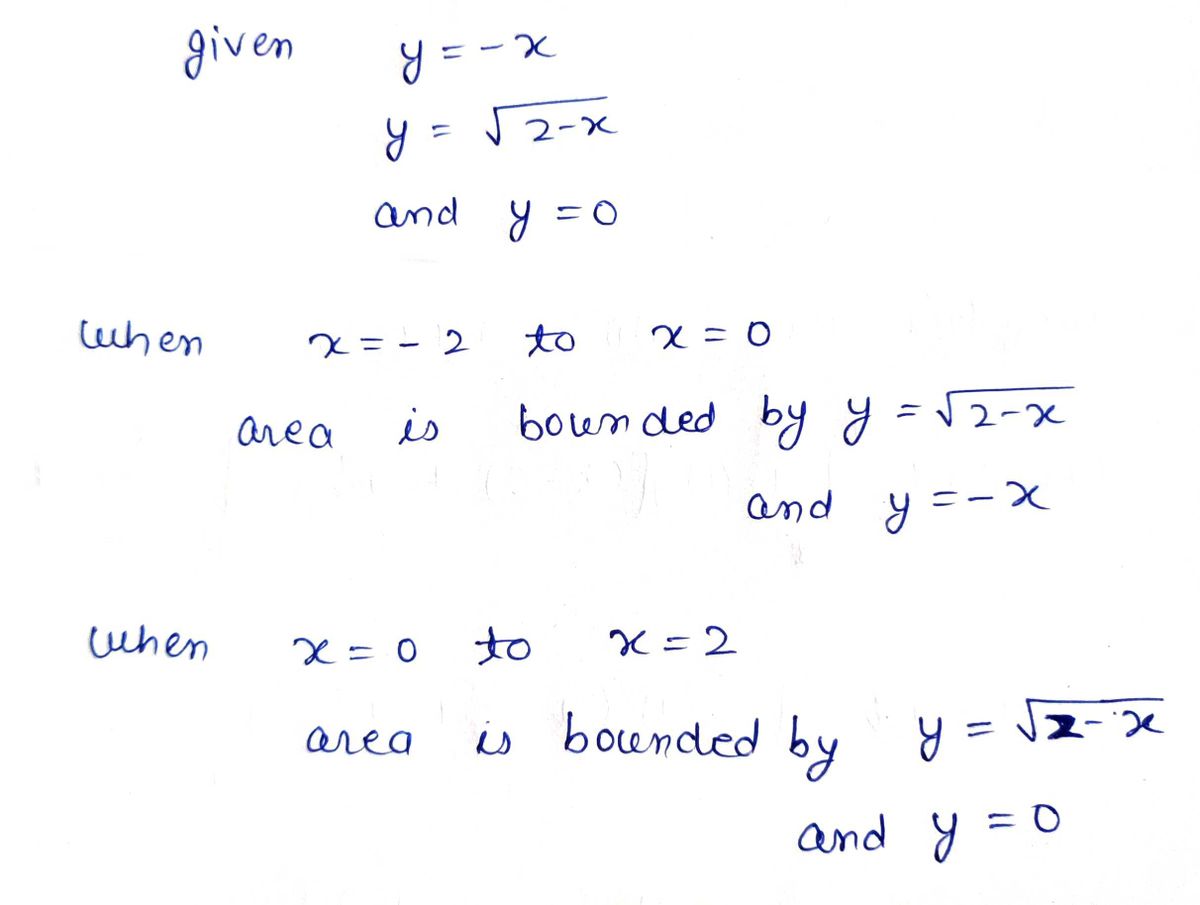 given y = -x
y = √2-x
and y = 0
when x = -2 to x = 0
area is bounded by y = √2-x
and y = -x
when x = 0 to x = 2
area is bounded by y = √2-x
and y = 0